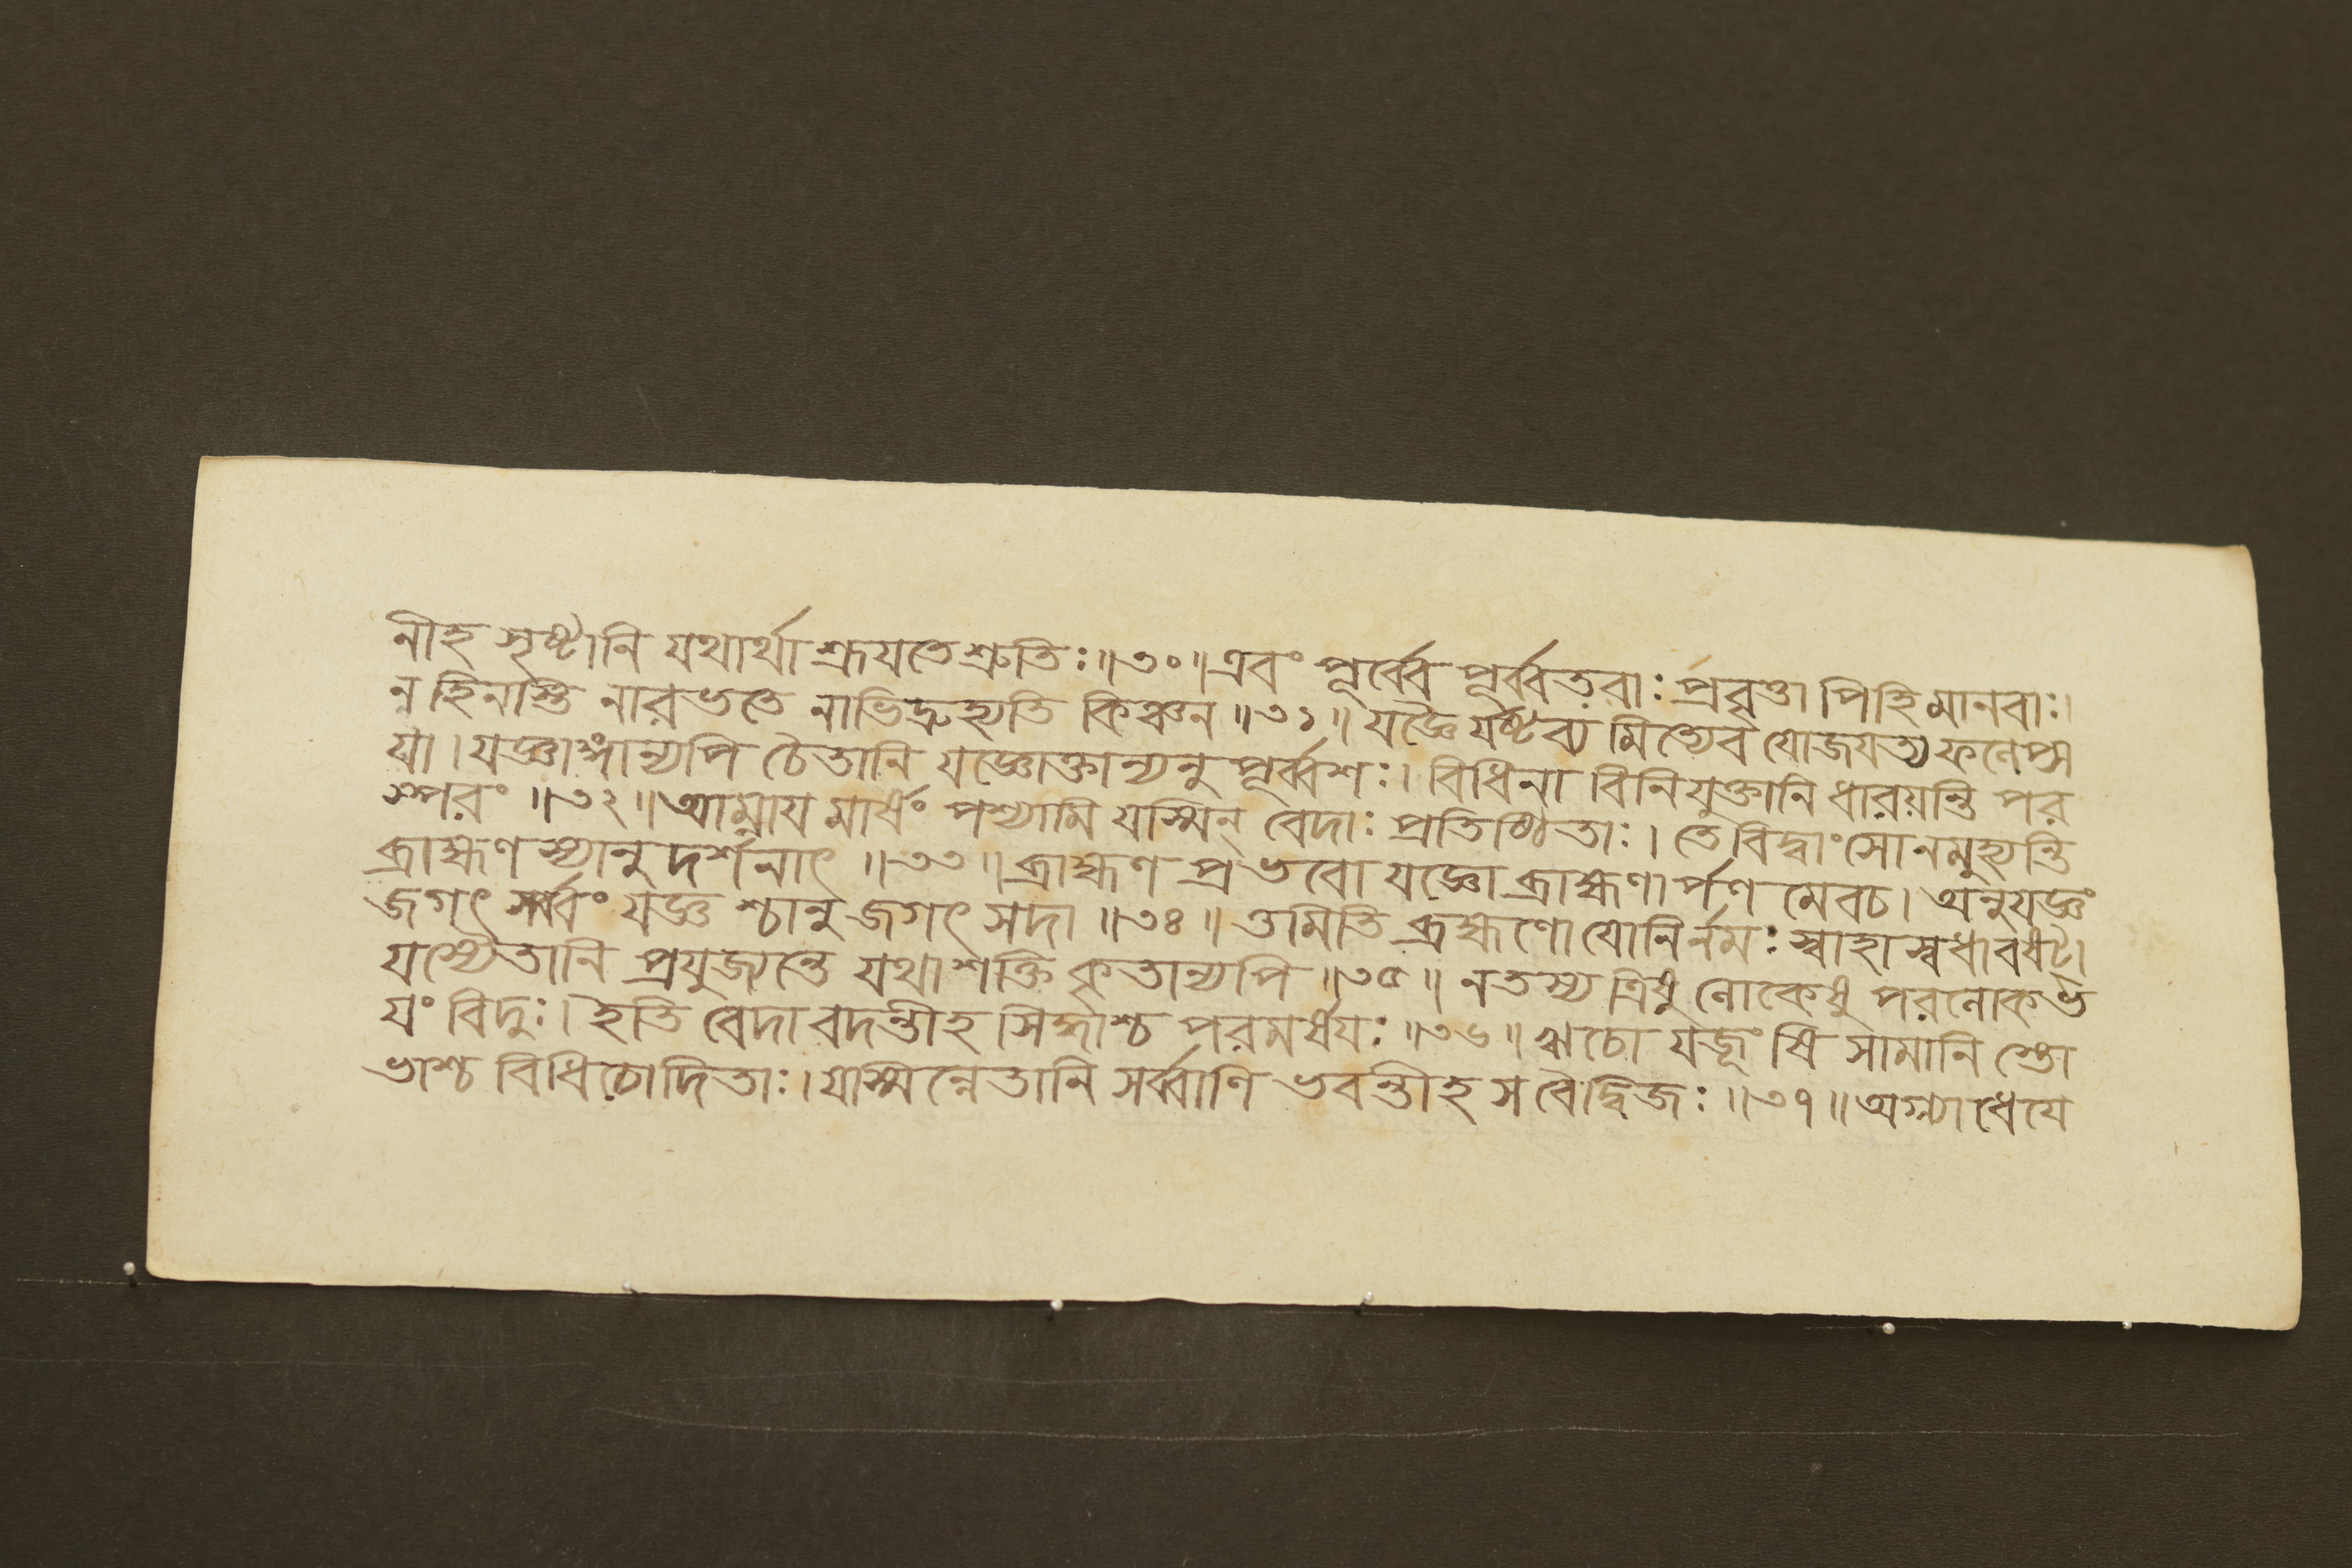 নীহ সৃষ্টানি যথার্থা শ্রূযতে শ্রুতিঃ॥৩০॥এবং পূর্ব্বে পূর্ব্বতরাঃ প্রবৃত্তা পিহি মানবাঃ।
ন হিনাস্তি নারভতে নাভিদ্রুহ্যতি কিঞ্চন॥৩১॥ যজ্ঞৈ র্যষ্টব্য মিত্যেব যোজযত্য ফলেপ্স
যা।যজ্ঞাঙ্গান্যপি চৈতানি যজ্ঞোক্তান্যনু পূর্ব্বশঃ। বিধিনা বিনিযুক্তানি ধারয়ন্তি পর
স্পরং॥৩২॥আম্নায মার্ষং পশ্যামি যস্মিন্ বেদাঃ প্রতিষ্ঠিতাঃ। তে বিদ্বাংসোনমুহ্যন্তি
ব্রাহ্মণ স্যানু দর্শনাৎ॥৩৩॥ব্রাহ্মণ প্রভবো যজ্ঞো ব্রাহ্মণার্পণ মেবচ। অনুযজ্ঞং
জগৎ সর্ব্বং যজ্ঞ শ্চানু জগৎ সদা॥৩৪॥ ওমিতি ব্রহ্মণো যোনির্নমঃ স্বাহা স্বধাবষট্।
যস্যৈতানি প্রযুজ্যন্তে যথাশক্তি কৃতান্যপি॥৩৫॥ নতস্য ত্রিষু লোকেষু পরলোক ভ
যং বিদুঃ। ইতি বেদা বদন্তীহ সিদ্ধাশ্চ পরমর্ষযঃ॥৩৬॥ ঋচো যজূং ষি সামানি স্তো
ভাশ্চ বিধিচোদিতাঃ। যাস্মিন্নেতানি সর্ব্বাণি ভবন্তীহ স বৈদ্বিজঃ॥৩৭॥অগ্ন্যাধেযে